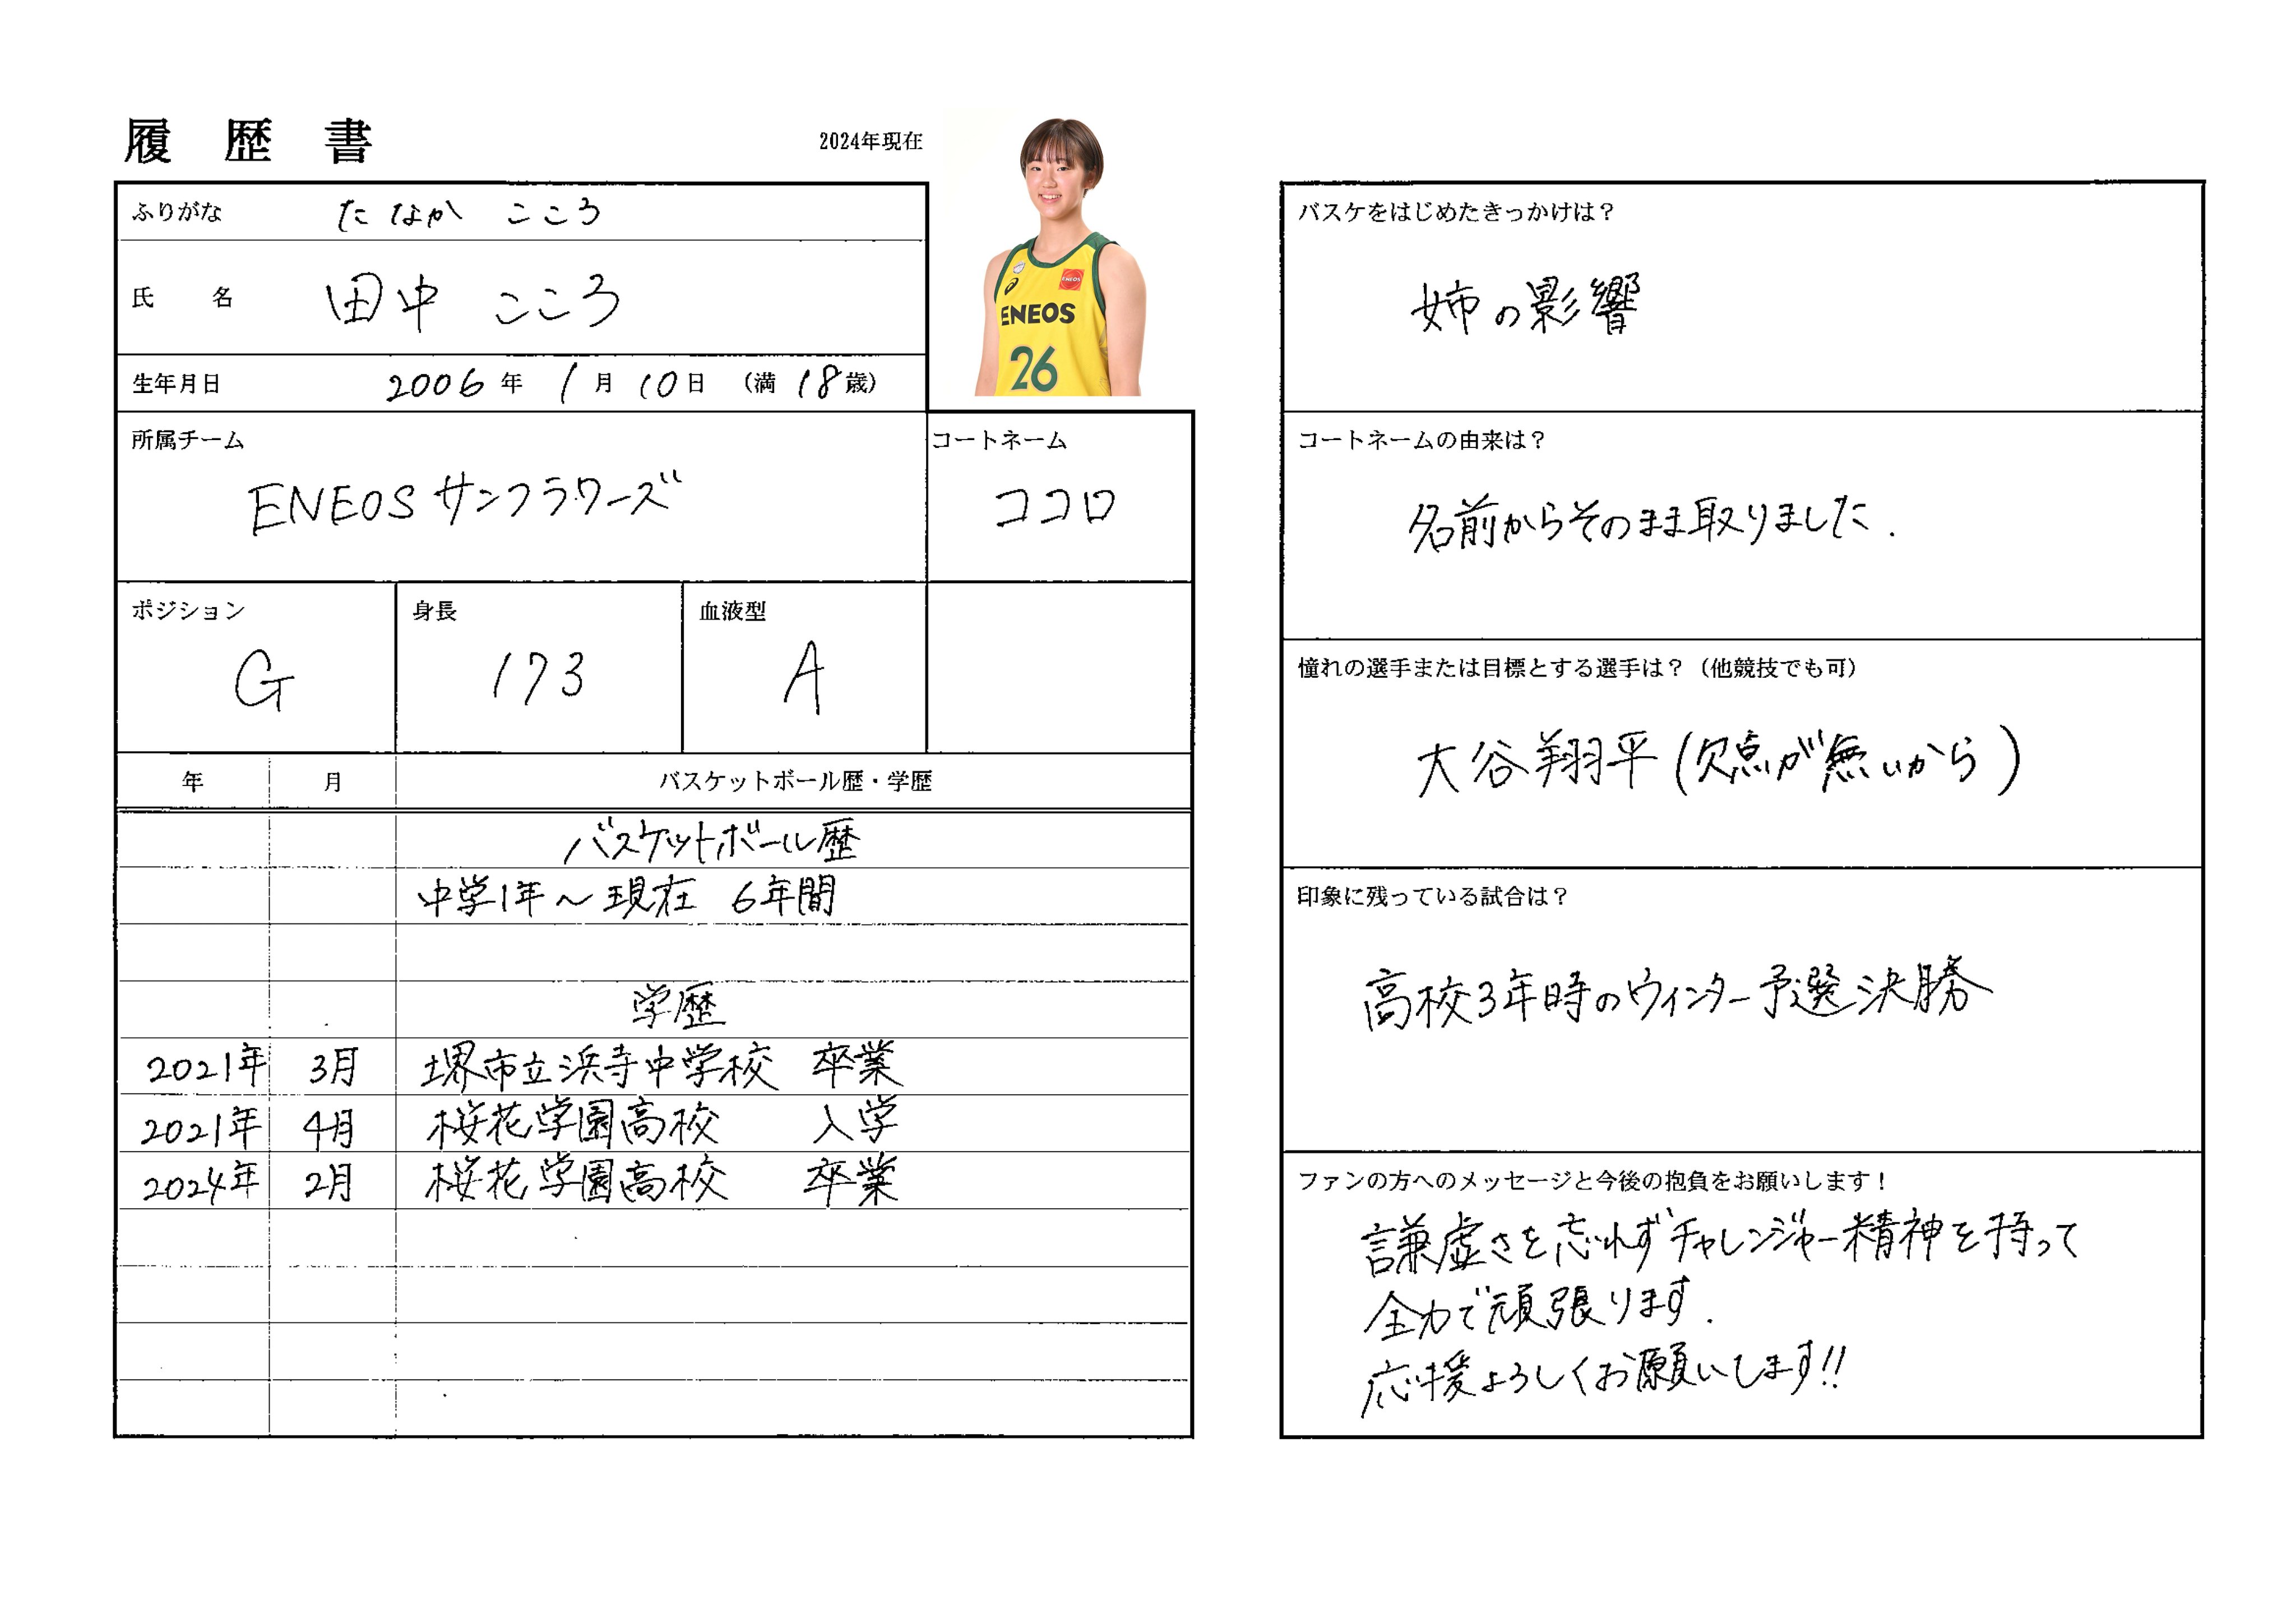 履歴書
2024年現在
ふりがな たなか こころ
氏名 田中 こころ
生年月日 2006年 1月 10日 (満 18歳)
ENEOS
ENEOS
26
所属チーム
ENEOSサンフラワーズ
コートネーム
ココロ
ポジション
G
身長
173
血液型
A
年 月 バスケットボール歴・学歴
バスケットボール歴
中学1年～現在 6年間
学歴
2021年 3月 堺市立浜寺中学校 卒業
2021年 4月 桜花学園高校 入学
2024年 2月 桜花学園高校 卒業
バスケをはじめたきっかけは?
姉の影響
コートネームの由来は?
名前からそのまま取りました.
憧れの選手または目標とする選手は?(他競技でも可)
大谷翔平(欠点が無いから)
印象に残っている試合は?
高校3年時のウィンター予選決勝
ファンの方へのメッセージと今後の抱負をお願いします!
謙虚さを忘れずチャレンジャー精神を持って
全力で頑張ります.
応援よろしくお願いします!!